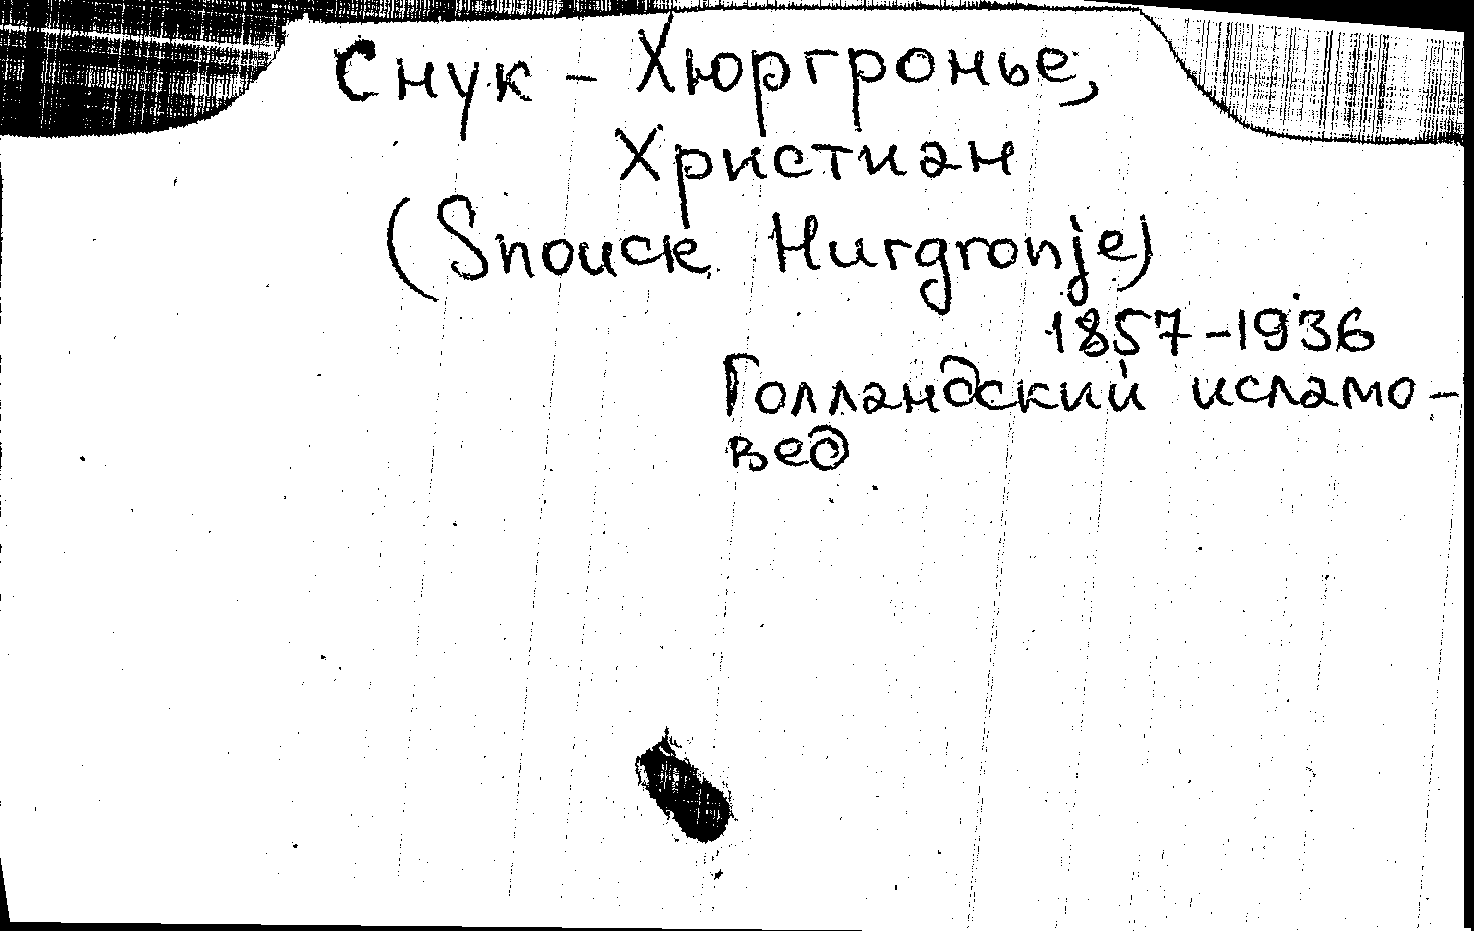 Снук - Хюргронье,
Христиан
(Snouck Hurgronje)
1857-1936
Голландский исламо-
вед